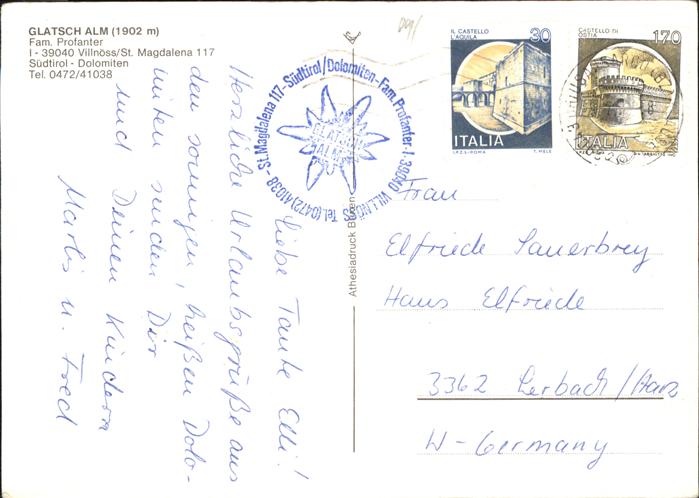 GLATSCH ALM (1902 m)
Fam. Profanter
I - 39040 Villnöss/St. Magdalena 117
Südtirol - Dolomiten
Tel. 0472/41038
Liebe Tante Elli!
Herzliche Urlaubsgrüße aus
den sonnigen, heißen Dolo-
miten senden Dir
und Deinen Kindern
Marlis u. Fred
St. Magdalena 117-Südtirol/Dolomiten-Fam. Profanter-I-39040 VILLNÖSS Tel. (0472) 41038 -
GLATSCH
ALM
Athesiadruck Bozen
IL CASTELLO
L'AQUILA
30
ITALIA
I.P.Z.S.-ROMA
T. MELE
CASTELLO DI
OSTIA
170
ITALIA
Frau
Elfriede Sauerbrey
Haus Elfriede
3362 Lerbach/Harz
W-Germany